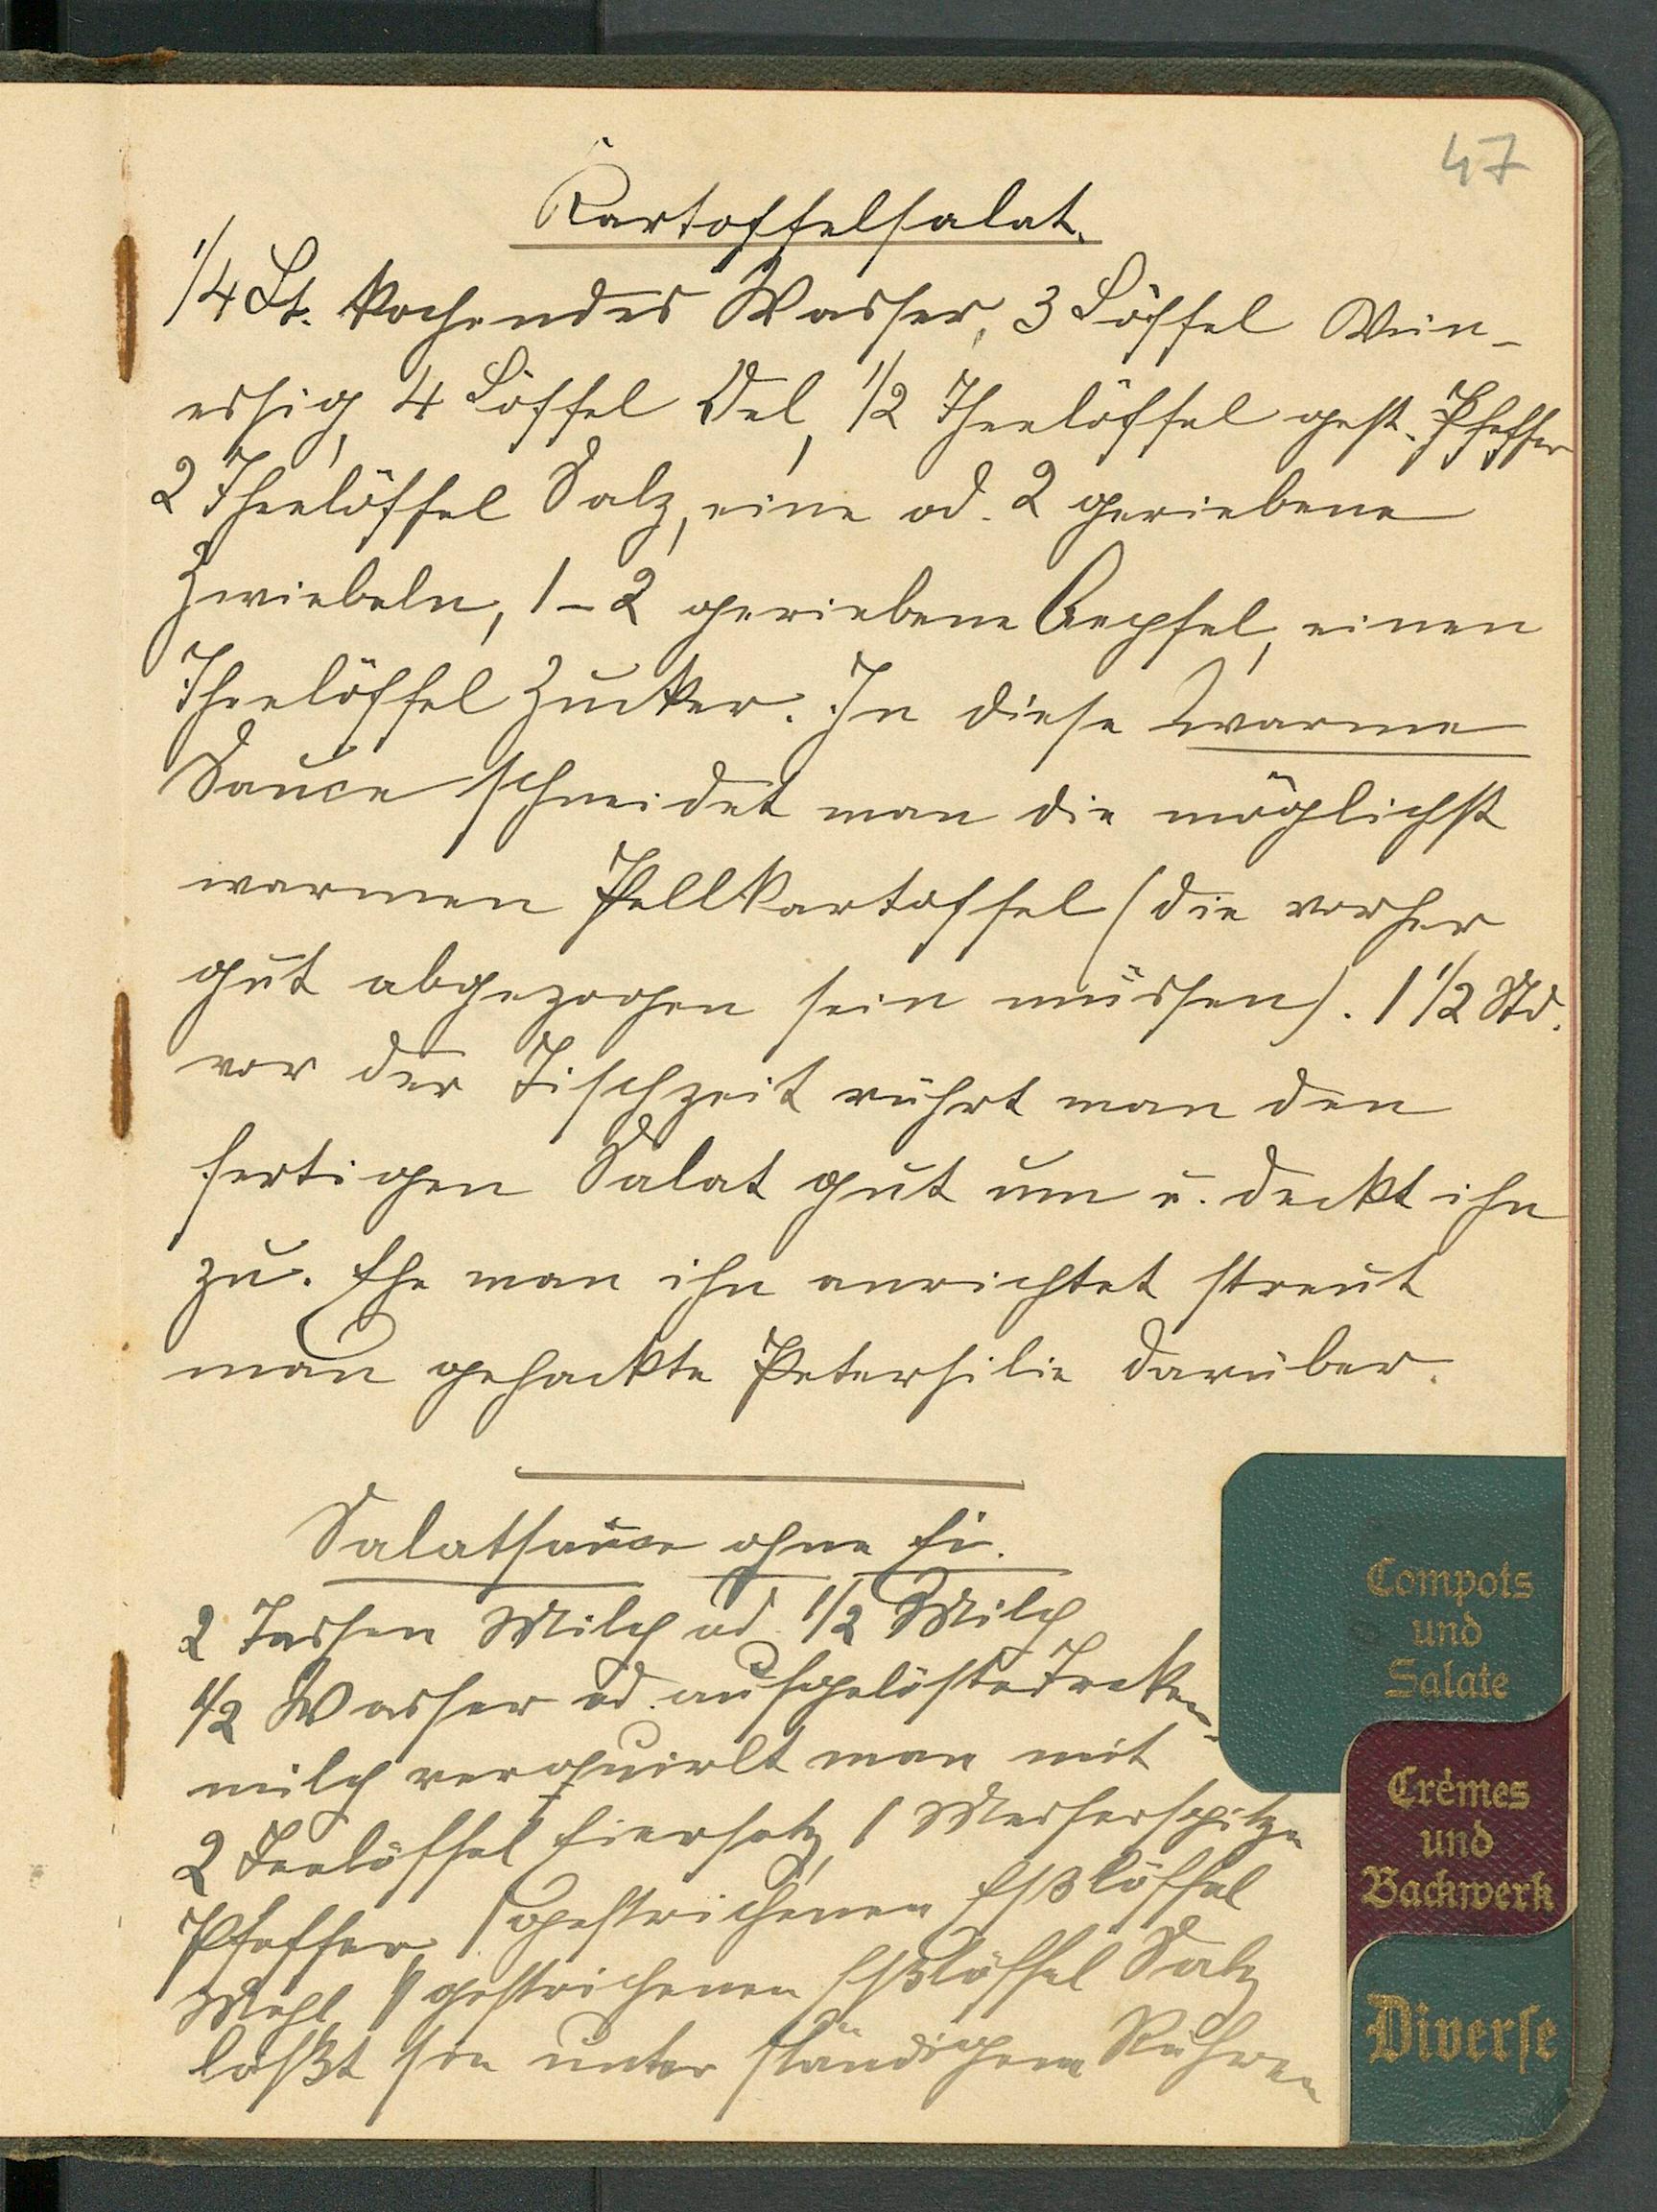 47
Kartoffelsalat.
1/4 Lt. kochendes Wasser, 3 Löffel Wein-
essig, 4 Löffel Oel, 1/2 Theelöffel gest. Pfeffer
2 Theelöffel Salz, eine od. 2 geriebene
Zwiebeln, 1-2 geriebene Aepfel, einen
Theelöffel Zucker. In diese warme
Sauce schneidet man die möglichst
warmen Pellkartoffel (die vorher
gut abgezogen sein müssen). 1 1/2 Std.
vor der Tischzeit rührt man den
fertigen Salat gut um u. deckt ihn
zu. Ehe man ihn anrichtet streut
man gehackte Petersilie darüber.
Salatsauce ohne Ei.
2 Tassen Milch od. 1/2 Milch
1/2 Wasser od. aufgelöste Trocken-
milch verquirlt man mit
2 Teelöffel Eiersatz, 1 Messerspitze
Pfeffer, 1 gestrichenen Eßlöffel
Mehl, 1 gestrichenen Eßlöffel Salz
läßt sie unter ständigem Rühren
Compots
und
Salate
Crèmes
und
Backwerk
Diverse